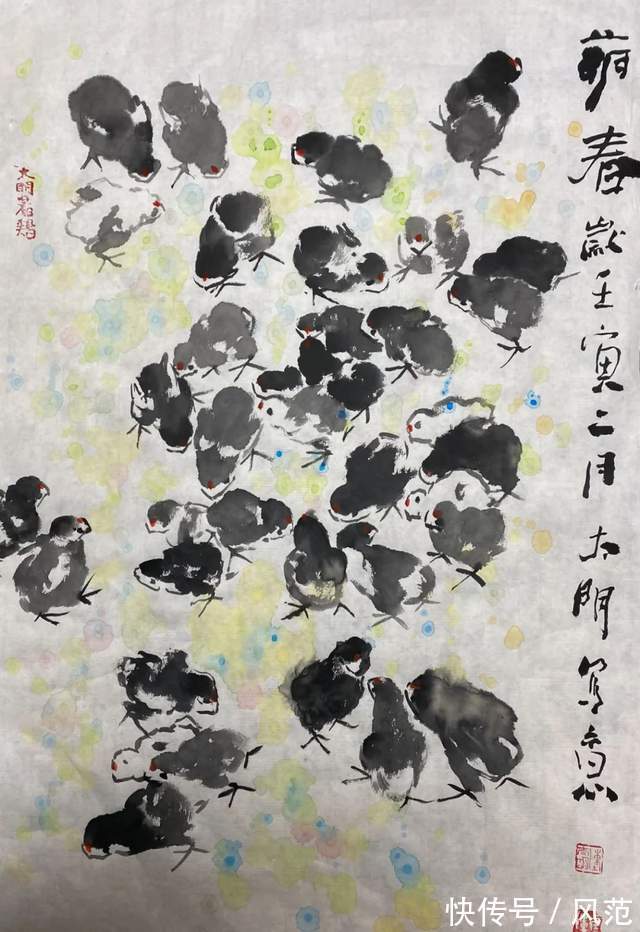 萌春 岁壬寅二月 大明写意
大明君鸡
快传号/风范